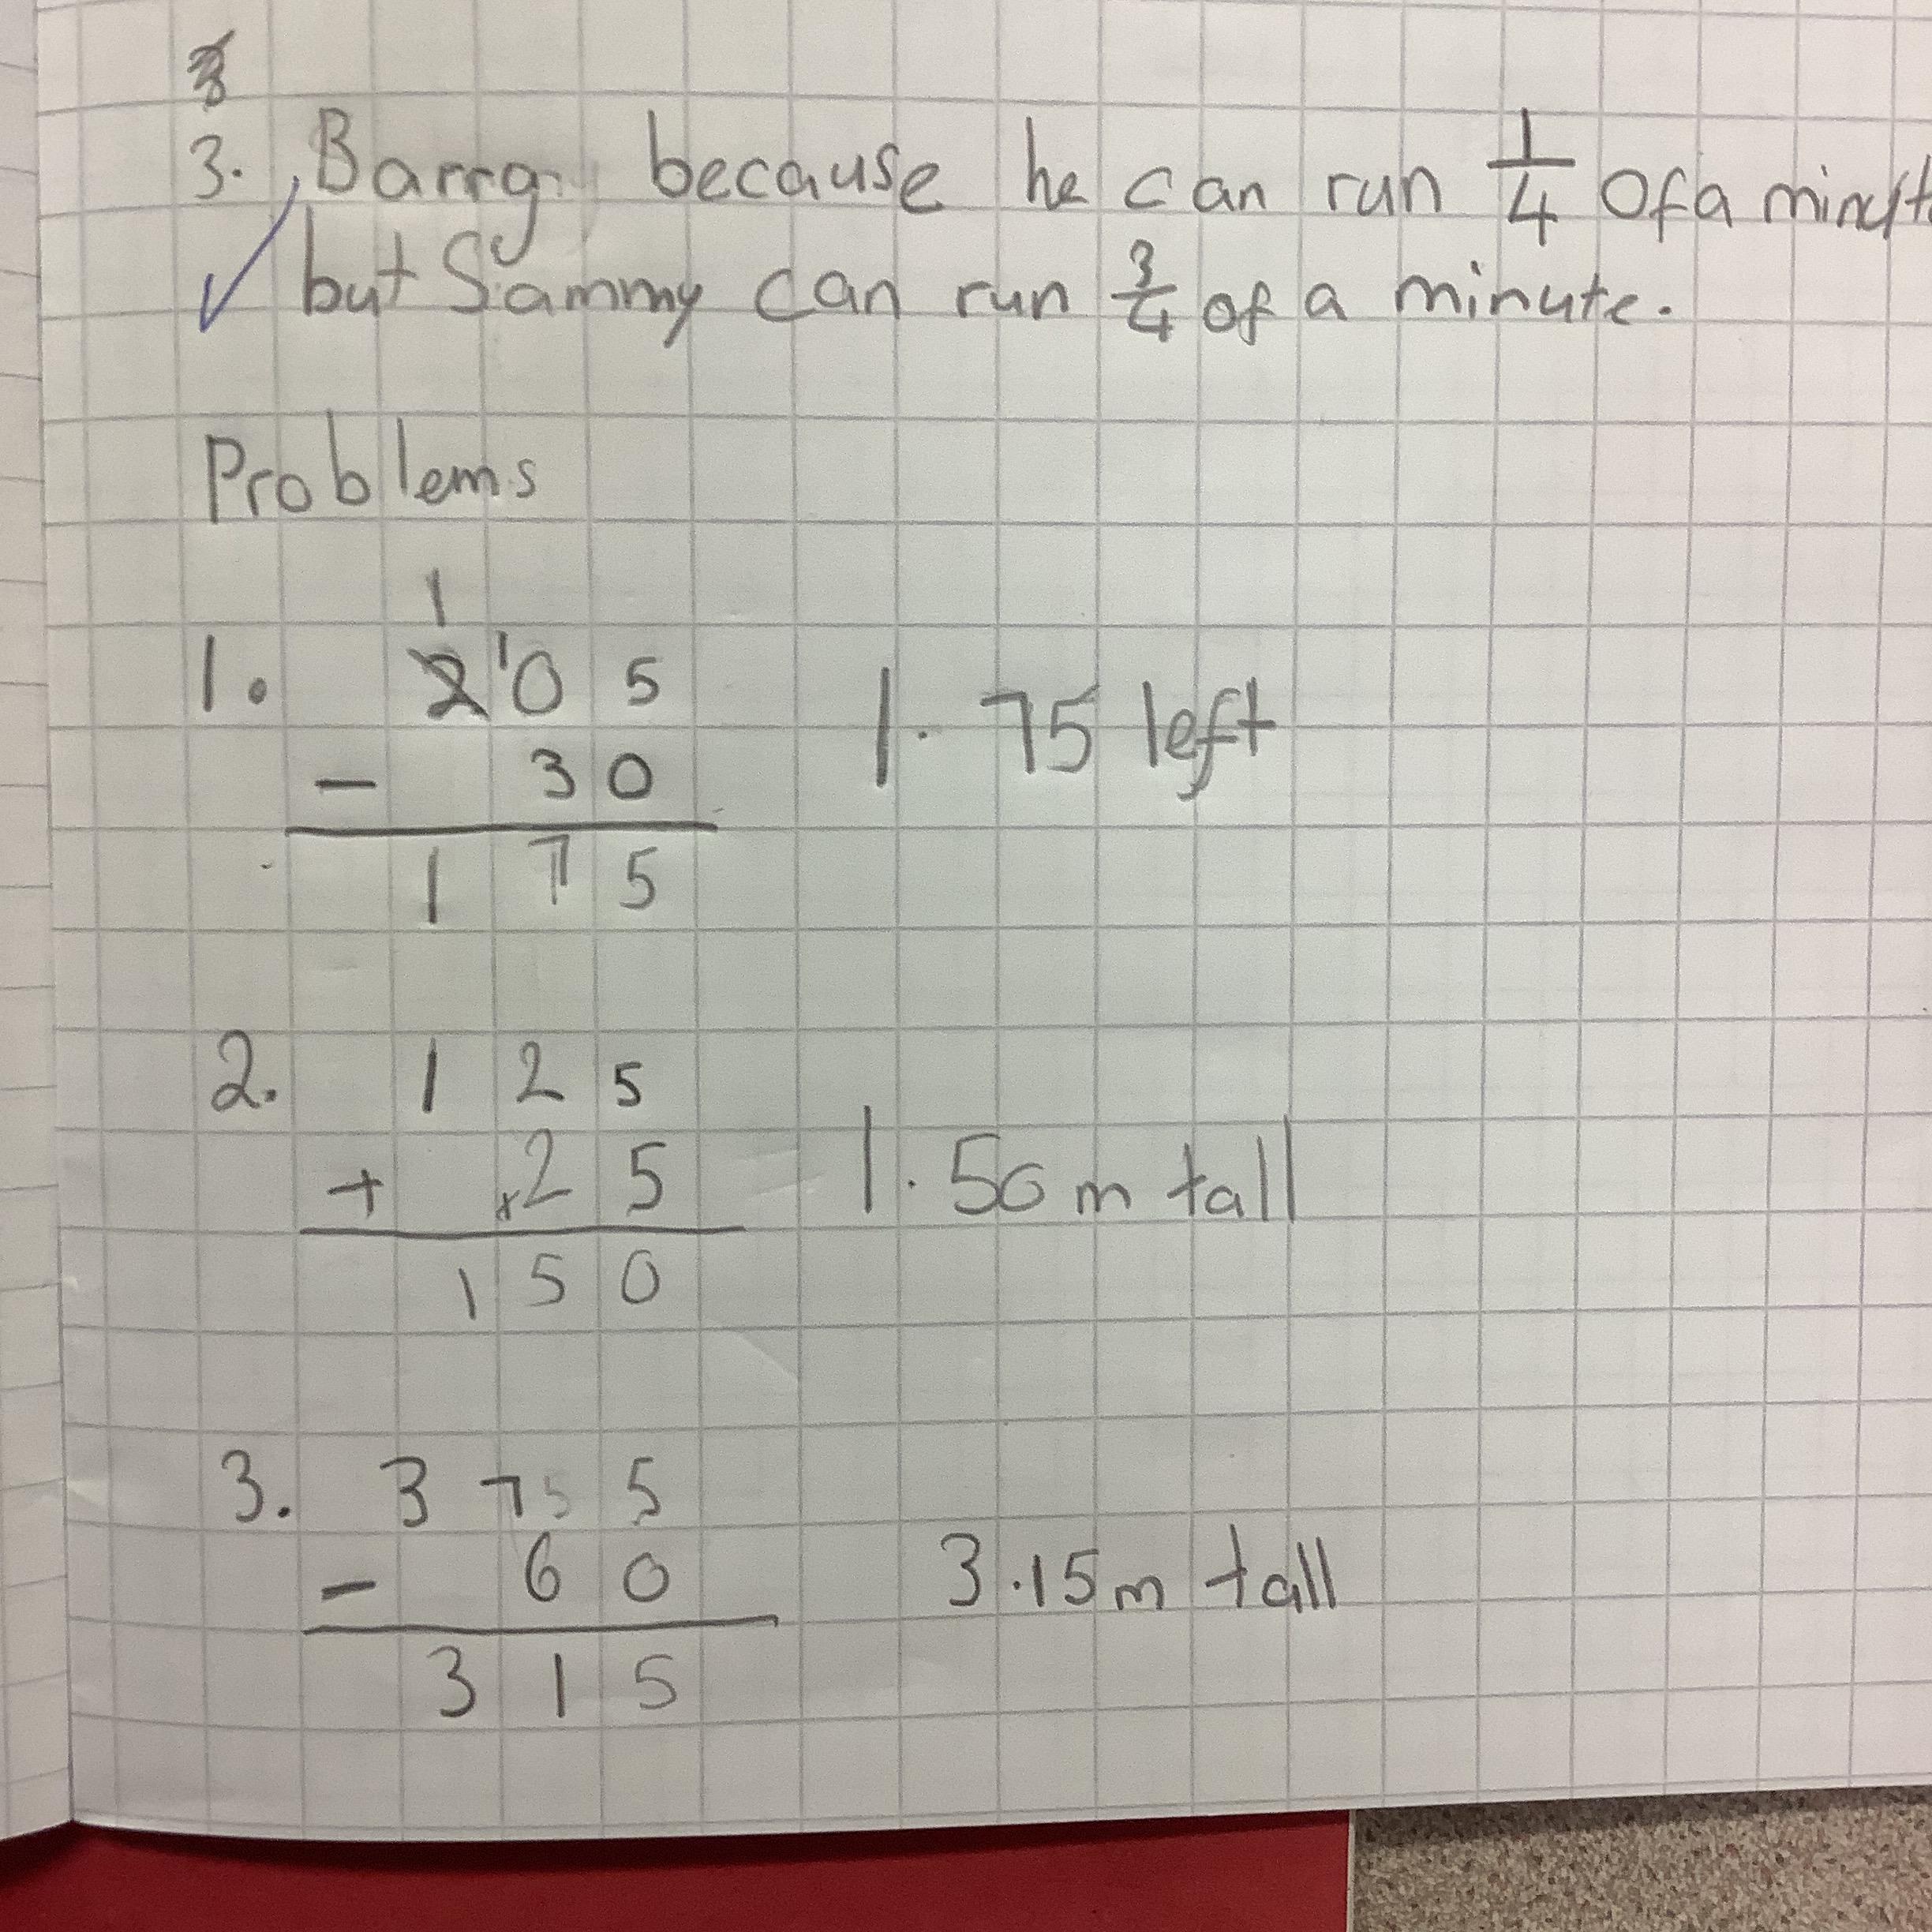 3. Barry because he can run 1/4 of a minute
but Sammy can run 3/4 of a minute.
Problems
1
1. 2 1 0 5 1.75 left
- 3 0
1 7 5
2. 1 2 5
+ 2 5 1.50 m tall
1 5 0
3. 3 7 5 5
- 6 0 3.15 m tall
3 1 5